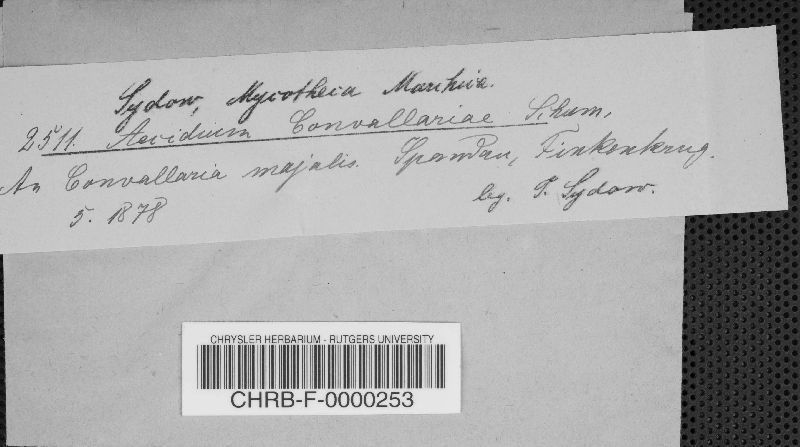 Sydow, Mycotheca Marchica.
2511. Aecidium Convallariae Schum,
An Convallaria majalis. Spandau, Finkenkrug.
5. 1878 leg. P. Sydow.
CHRYSLER HERBARIUM - RUTGERS UNIVERSITY
CHRB-F-0000253